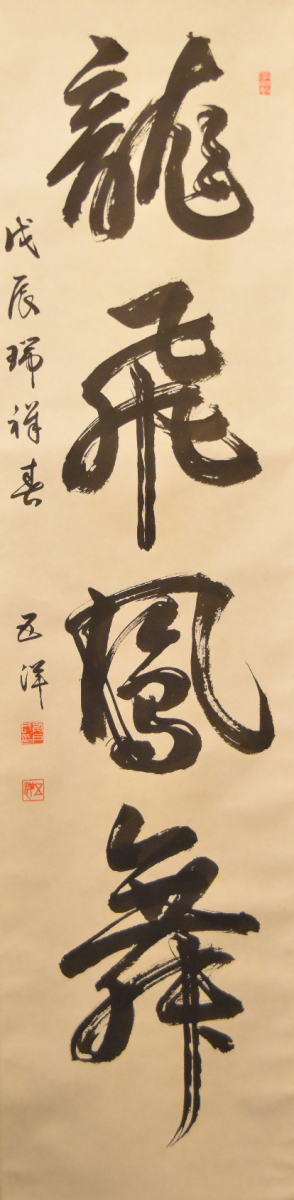 龍飛鳳舞
戊辰瑞祥春 五洋